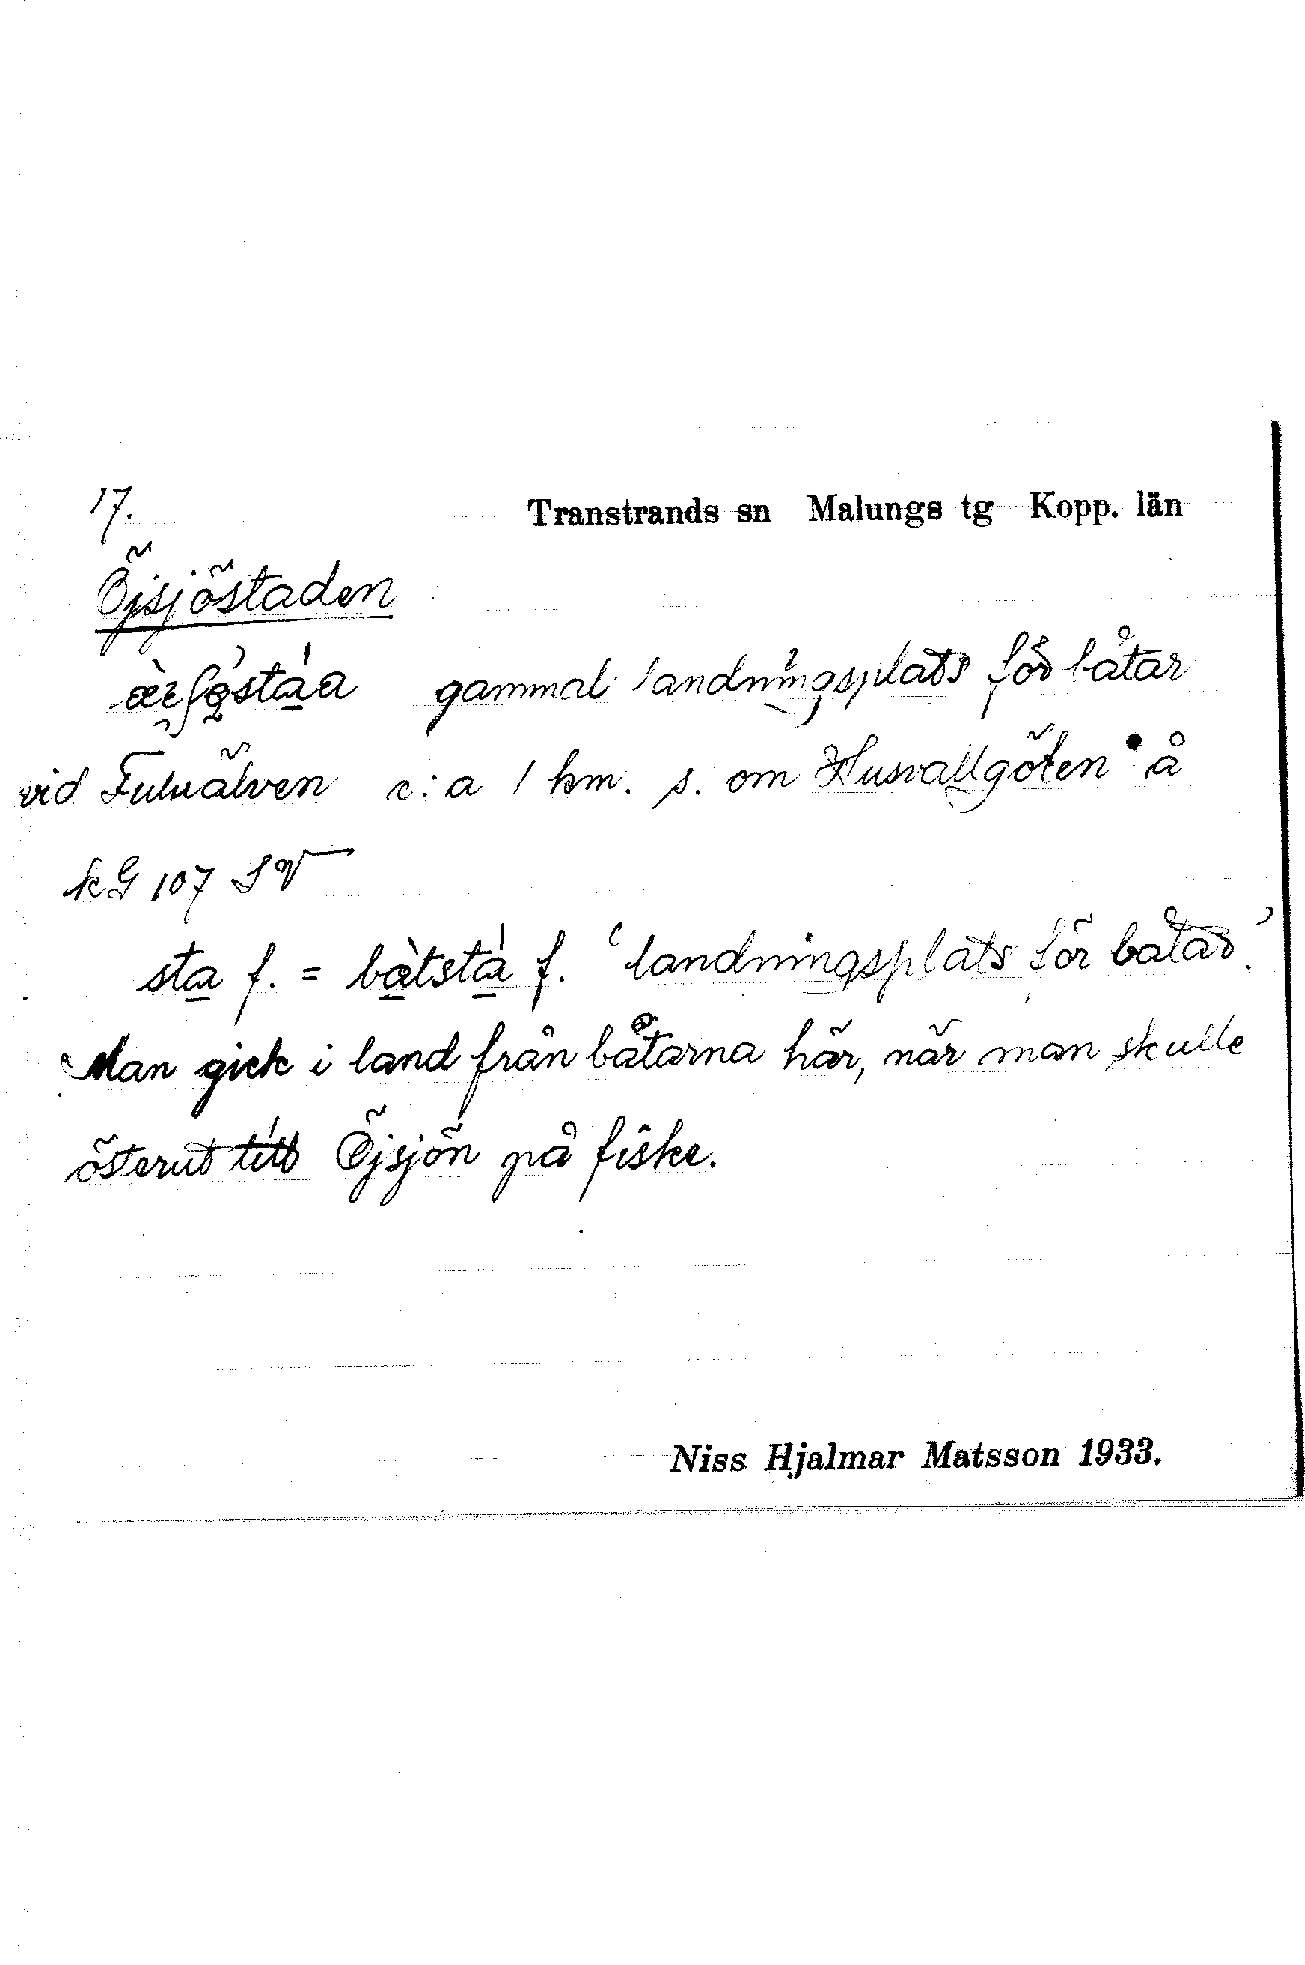 17.
Transtrands sn Malungs tg Kopp. län
Öjsjöstaden
gammal landningsplats för båtar
vid Fuluälven c:a 1 km. s. om Husvallgöten å
kG 107 SV
sta f. = båtstá f. 'landningsplats för båtar'.
Man gick i land från båtarna här, när man skulle
österut till Öjsjön på fiske.
Niss Hjalmar Matsson 1933.